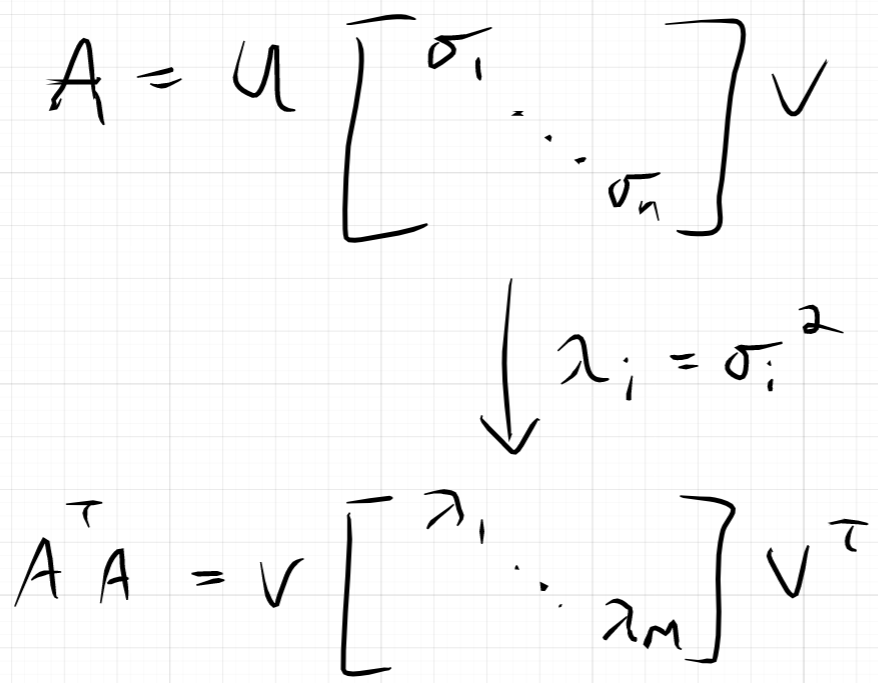 A = U [ σ₁ ⋱ σₙ ] V
↓ λᵢ = σᵢ²
AᵀA = V [ λ₁ ⋱ λₙ ] Vᵀ